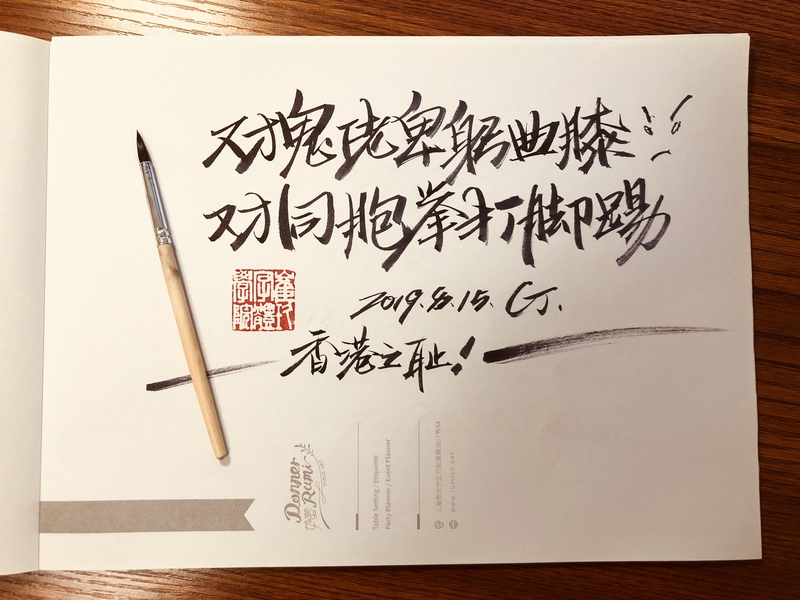 对鬼佬卑躬曲膝
对同抱拳打脚踢
2019.8.15. CJ.
香港之耻!
崔氏
字體
學院
Donner
Rumi
Table Setting / Etiquette
Party Planner / Event Planner
www.rumish.net